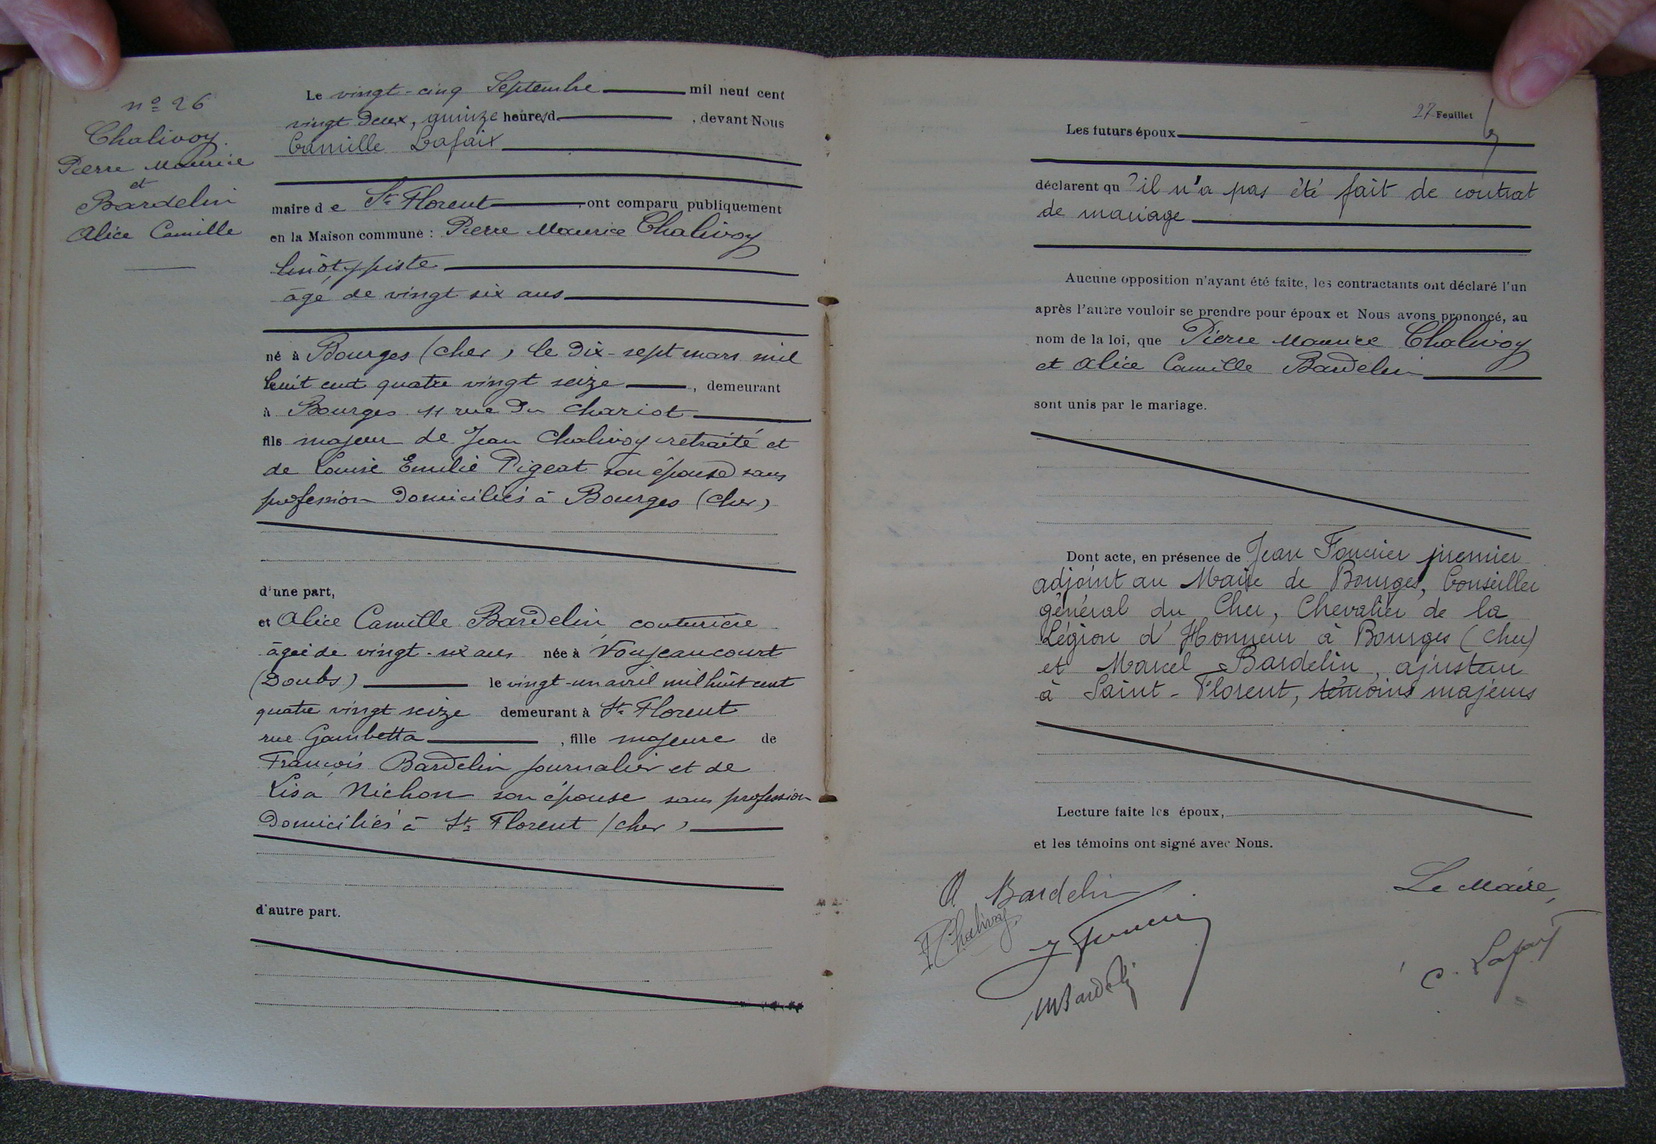 nº 26
Chalivoy
Pierre Maurice
et
Bardelin
Alice Camille
Le vingt-cinq Septembre mil neuf cent
vingt deux, quinze heures, devant Nous
Camille Lafaix
maire de St Florent ont comparu publiquement
en la Maison commune : Pierre Maurice Chalivoy
linotypiste
âgé de vingt six ans
né à Bourges (Cher) le dix-sept mars mil
huit cent quatre vingt seize, demeurant
à Bourges 11 rue du Chariot
fils majeur de Jean Chalivoy retraité et
de Louise Emilie Pigeat son épouse sans
profession domiciliés à Bourges (Cher)
d'une part,
et Alice Camille Bardelin couturière
âgée de vingt-six ans née à Voujeaucourt
(Doubs) le vingt-un avril mil huit cent
quatre vingt seize demeurant à St Florent
rue Gambetta, fille majeure de
François Bardelin journalier et de
Lisa Nichon son épouse sans profession
domiciliés à St Florent (Cher)
d'autre part.
27 Feuillet
Les futurs époux
déclarent qu'il n'a pas été fait de contrat
de mariage
Aucune opposition n'ayant été faite, les contractants ont déclaré l'un
après l'autre vouloir se prendre pour époux et Nous avons prononcé, au
nom de la loi, que Pierre Maurice Chalivoy
et Alice Camille Bardelin
sont unis par le mariage.
Dont acte, en présence de Jean Fournier premier
adjoint au Maire de Bourges, Conseiller
général du Cher, Chevalier de la
Légion d'Honneur à Bourges (Cher)
et Marcel Bardelin, ajusteur
à Saint-Florent, témoins majeurs
Lecture faite les époux,
et les témoins ont signé avec Nous.
A Bardelin
Le Maire,
P Chalivoy
M Bardelin
C. Lafaix